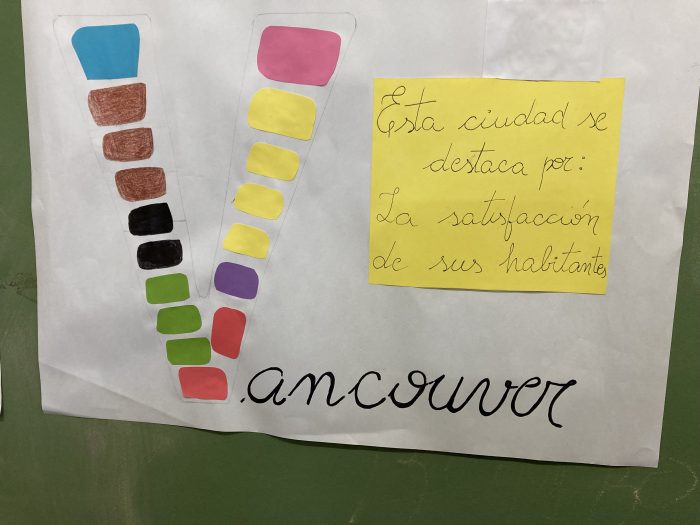 Esta ciudad se
destaca por:
La satisfacción
de sus habitantes
Vancouver